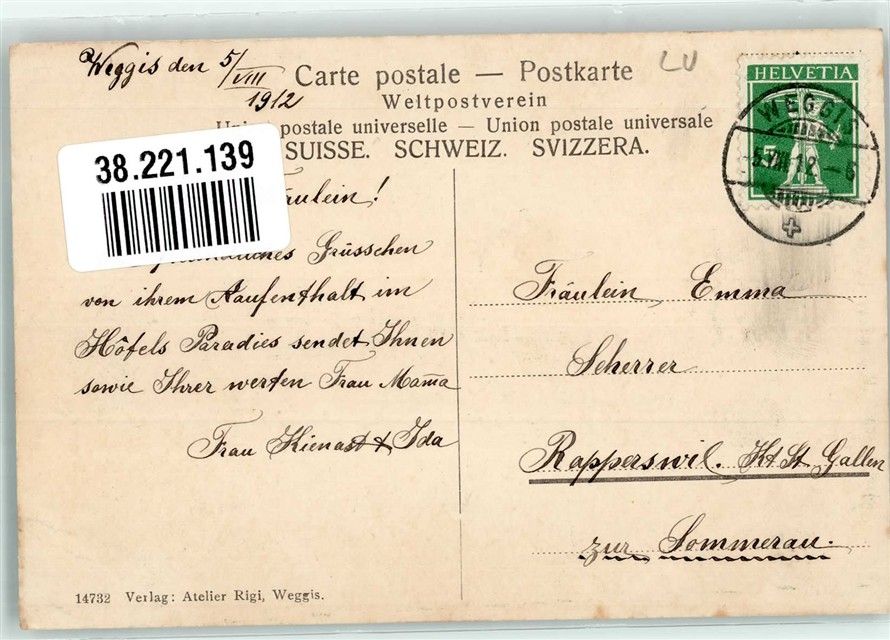 Weggis den 5/VIII
1912
LU
Carte postale — Postkarte
Weltpostverein
postale universelle — Union postale universale
SUISSE. SCHWEIZ. SVIZZERA.
HELVETIA
5
WEGGIS
5.VIII.12.-6
38.221.139
Grüsschen
von ihrem Aufenthalt im
Hôtels Paradies sendet Ihnen
sowie Ihrer werten Frau Mam̄a
Frau Kienast & Ida
Fräulein Emma
Scherrer
Rapperswil. Kt St Gallen
zur Sommerau.
14732 Verlag: Atelier Rigi, Weggis.